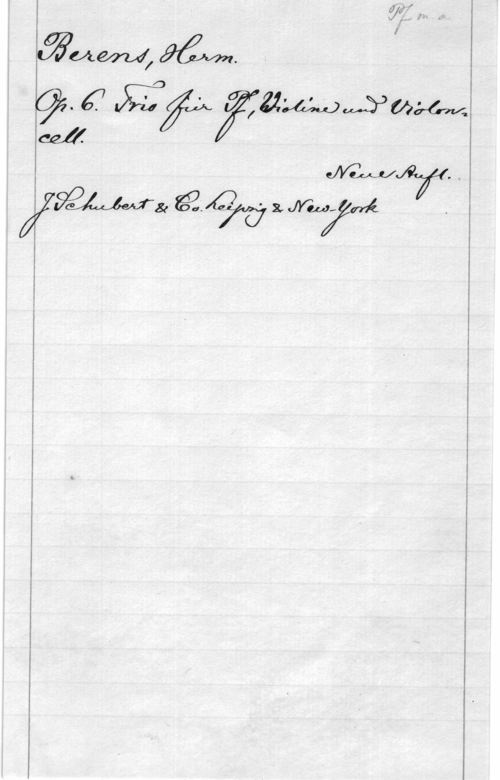 Pf m. a.
Berens, Herm.
Op. 6. Trio für Pf, Violine und Violon=
cell.
Neue Aufl.
J Schubert & Co. Leipzig & New-York